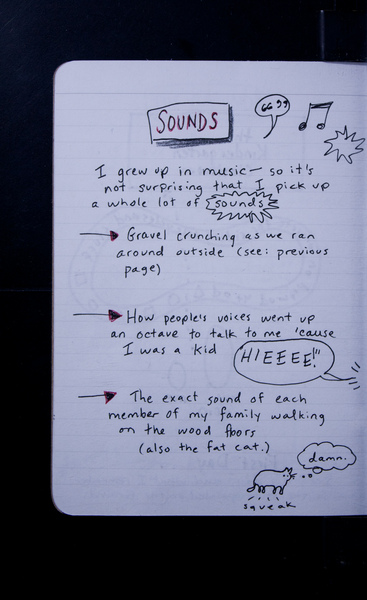 SOUNDS
“ ”
I grew up in music — so it's
not surprising that I pick up
a whole lot of sounds
Gravel crunching as we ran
around outside (see: previous
page)
How people's voices went up
an octave to talk to me 'cause
I was a kid
HIEEEE!"
The exact sound of each
member of my family walking
on the wood floors
(also the fat cat.)
damn.
squeak